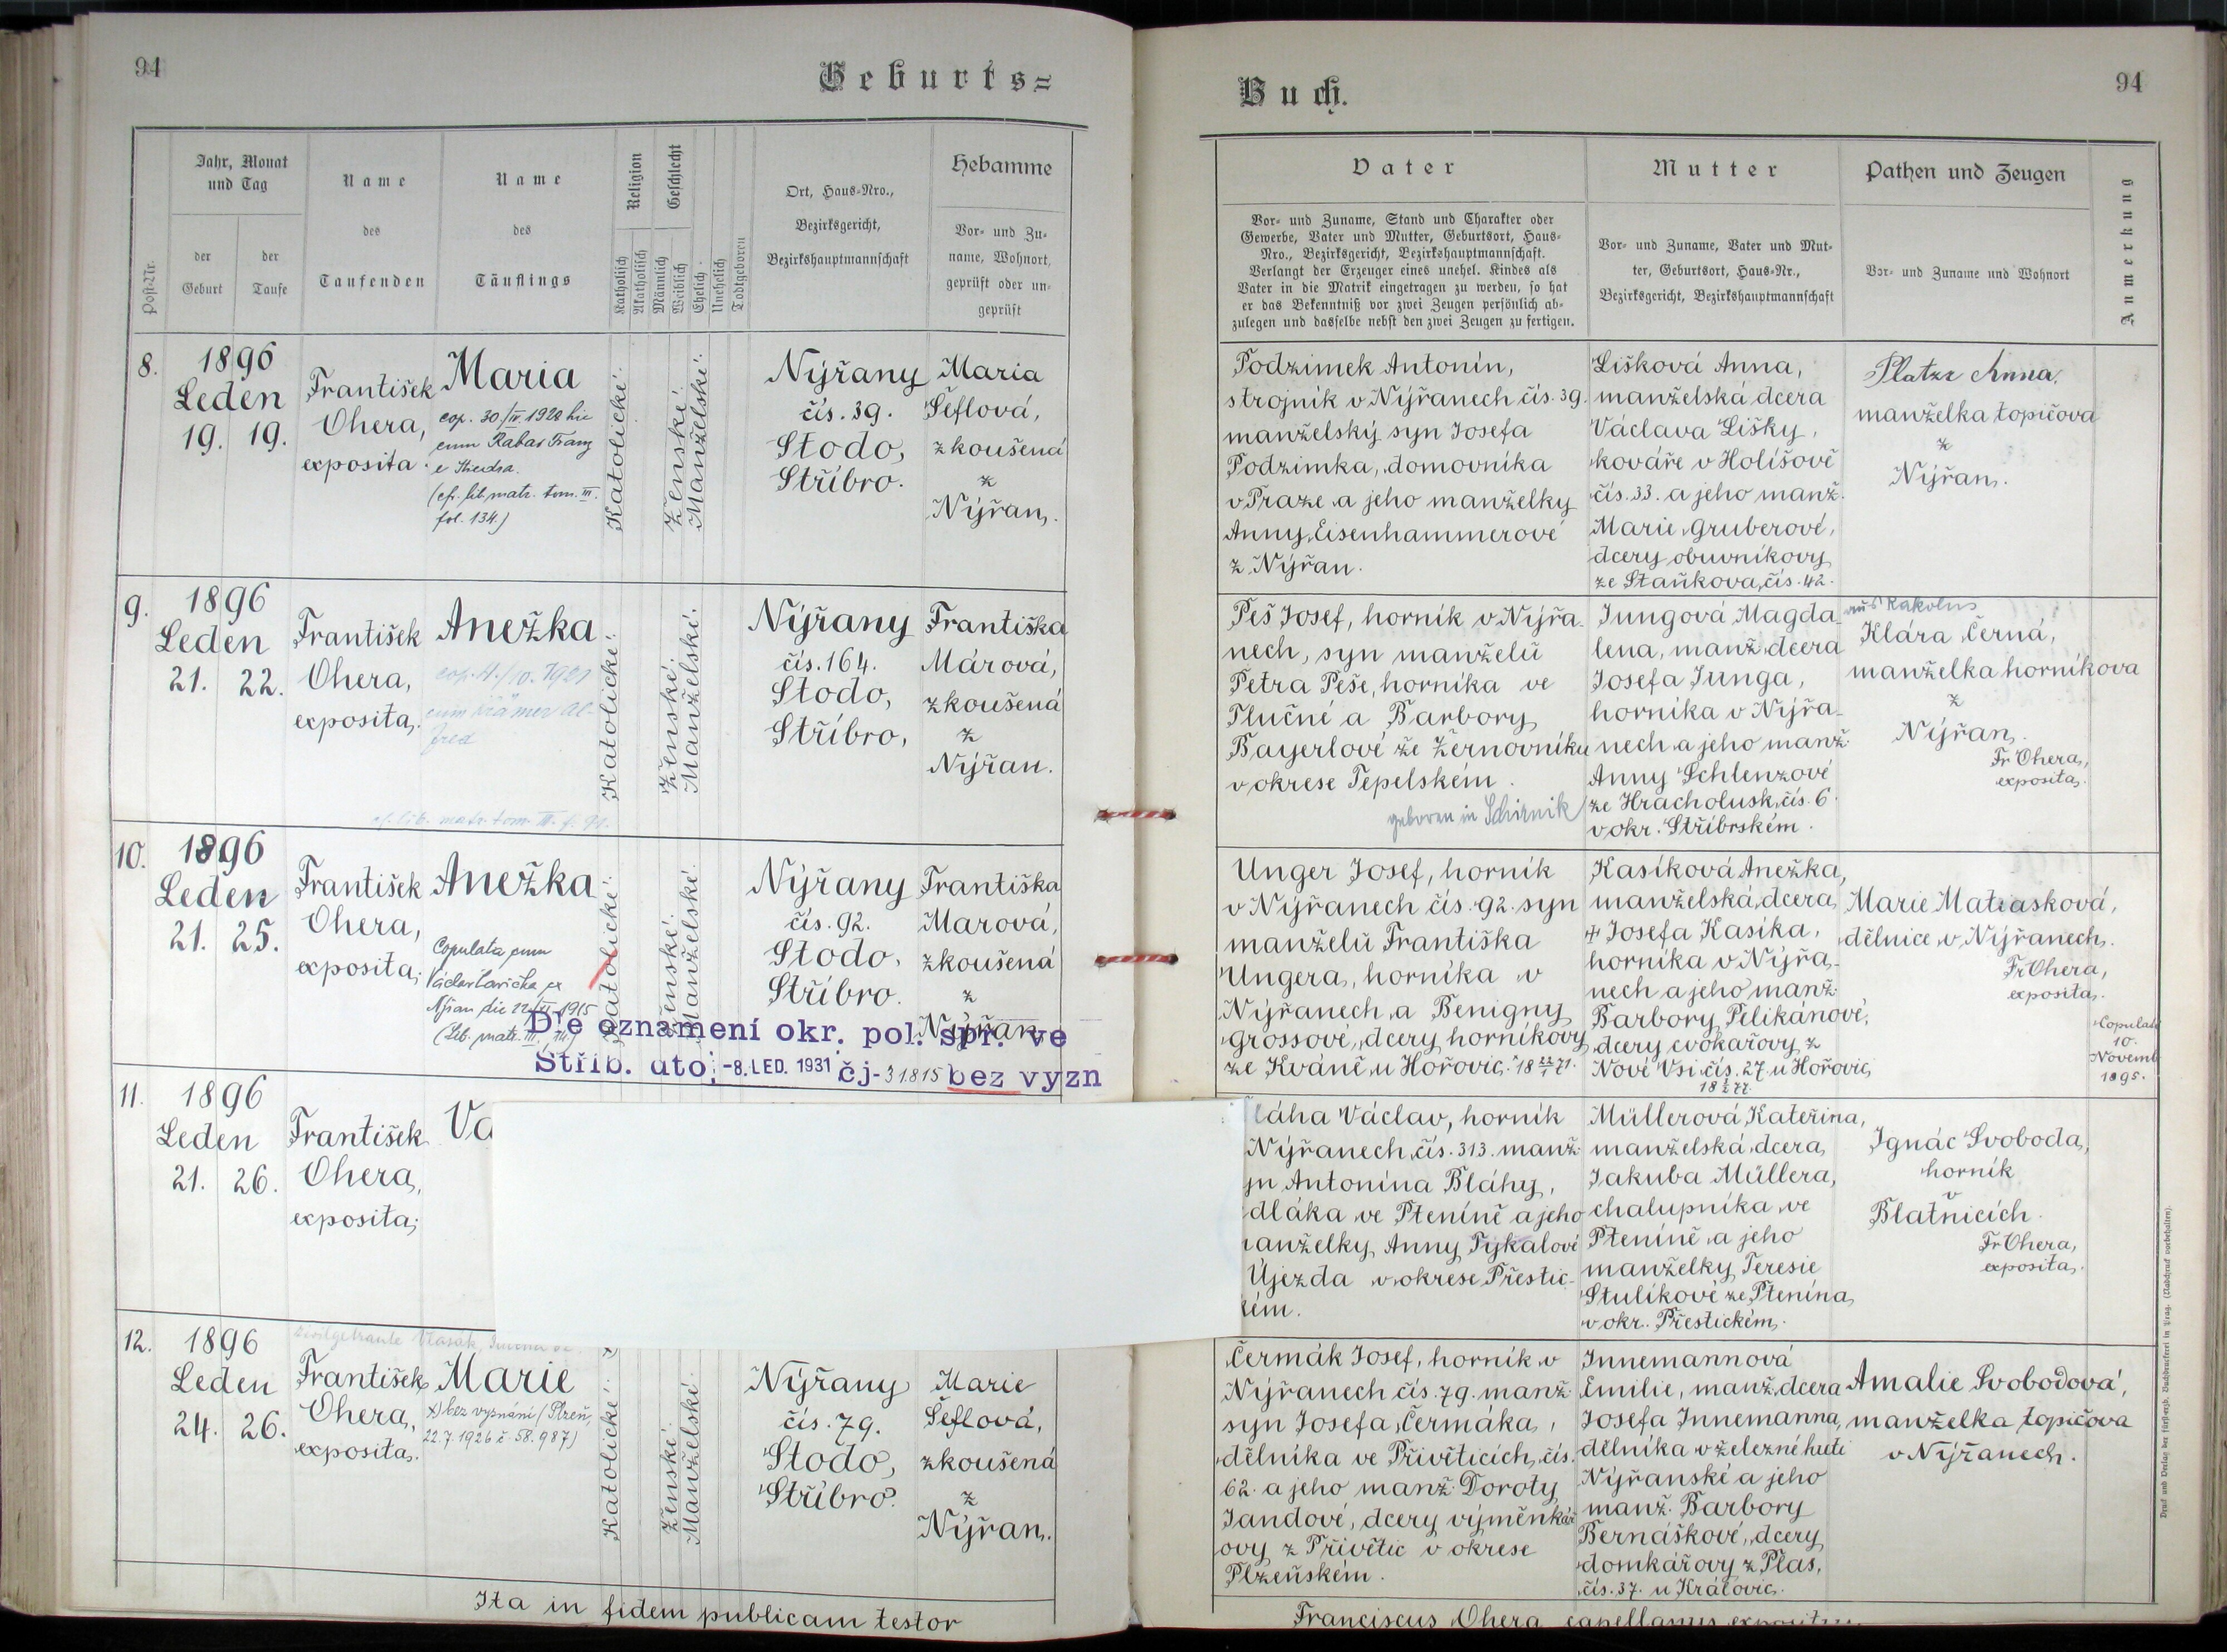 94
Geburts=
Jahr, Monat
und Tag
der
Geburt
der
Taufe
Post-Nr.
Name
des
Taufenden
Name
des
Täuflings
Religion
Katholisch
Akatholisch
Geschlecht
Männlich
Weiblich
Ehelich
Unehelich
Todtgeboren
Ort, Haus-Nro.,
Bezirksgericht,
Bezirkshauptmannschaft
Hebamme
Vor- und Zu-
name, Wohnort,
geprüft oder un-
geprüft
8.
1896
Leden
19. 19.
František
Ohera,
exposita.
Maria
cop. 30/ 1920 hic
cum Rabas Franz
e
(cf. lib. matr. tom. III.
fol. 134)
Katolické.
Ženské.
Manželské.
Nýřany
čís. 39.
Stodo,
Stříbro.
Maria
Šeflová,
zkoušená
z
Nýřan.
9.
1896
Leden
21. 22.
František
Ohera,
exposita.
Anežka
cop. 4./10. 1921
cum Krämer Al-
fred
cf. lib. matr. tom. III. f. 91.
Katolické.
Ženské.
Manželské.
Nýřany
čís. 164.
Stodo,
Stříbro,
Františka
Márová,
zkoušená
z
Nýřan.
10.
1896
Leden
21. 25.
František
Ohera,
exposita;
Anežka
Copulata cum
Václav ex
Nýřan die 1915
(Lib. matr. III.
Katolické.
Ženské.
Manželské.
Nýřany
čís. 92.
Stodo,
Stříbro.
Františka
Marová,
zkoušená
z
Nýřan.
Dle oznámení okr. pol. spr. ve
Stříb. dto: -8. LED. 1931 čj- 31815 bez vyzn
11.
1896
Leden
21. 26.
František
Ohera,
exposita;
Va
12.
1896
Leden
24. 26.
František
Ohera,
exposita.
Marie
x) bez vyznání (Plzeň,
22.7.1926 č. 58.987)
Katolické.
Ženské.
Manželské.
Nýřany
čís. 79.
Stodo,
Stříbro.
Marie
Šeflová,
zkoušená
z
Nýřan.
Ita in fidem publicam testor
Buch.
94
Vater
Vor- und Zuname, Stand und Charakter oder
Gewerbe, Vater und Mutter, Geburtsort, Haus-
Nro., Bezirksgericht, Bezirkshauptmannschaft.
Verlangt der Erzeuger eines unehel. Kindes als
Vater in die Matrik eingetragen zu werden, so hat
er das Bekenntniß vor zwei Zeugen persönlich ab-
zulegen und dasselbe nebst den zwei Zeugen zu fertigen.
Mutter
Vor- und Zuname, Vater und Mut-
ter, Geburtsort, Haus-Nr.,
Bezirksgericht, Bezirkshauptmannschaft
Pathen und Zeugen
Vor- und Zuname und Wohnort
Anmerkung
Podzimek Antonín,
strojník v Nýřanech čís. 39.
manželský syn Josefa
Podzimka, domovníka
v Praze a jeho manželky
Anny Eisenhammerové
z Nýřan.
Lišková Anna,
manželská dcera
Václava Lišky,
kováře v Holíšově
čís. 33. a jeho manž.
Marie Gruberové,
dcery obuvníkovy
ze Staňkova, čís. 42.
Platzr Anna,
manželka topičova
z
Nýřan.
Peš Josef, horník v Nýřa-
nech, syn manželů
Petra Peše, horníka ve
Tlučné a Barbory
Bayerlové ze Žernovníku
v okrese Tepelském.
geboren in Schirnik
Jungová Magda-
lena, manž. dcera
Josefa Junga,
horníka v Nýřa-
nech a jeho manž.
Anny Schlenzové
ze Hracholusk, čís. 6.
v okr. Stříbrském.
aus
Klára Černá,
manželka horníkova
z
Nýřan.
Fr Ohera,
exposita.
Unger Josef, horník
v Nýřanech čís. 92. syn
manželů Františka
Ungera, horníka v
Nýřanech a Benigny
Grossové, dcery horníkovy
ze Kváně u Hořovic. 18 22/1 71.
Kasíková Anežka,
manželská dcera
+ Josefa Kasíka,
horníka v Nýřa-
nech a jeho manž.
Barbory Pelikánové,
dcery cvokařovy z
Nové Vsi čís. 27. u Hořovic,
Marie Matiasková,
dělnice v Nýřanech.
Fr Ohera,
exposita.
Copulati
10.
Novemb
1895.
láha Václav, horník
Nýřanech, čís. 313. manž.
yn Antonína Bláhy,
dláka ve Pteníně a jeho
anželky Anny Tykalové
Újezda v okrese Přestic-
kém.
Müllerová Kateřina,
manželská dcera
Jakuba Müllera,
chalupníka ve
Pteníně a jeho
manželky Teresie
Stulíkové ze Ptenína,
v okr. Přestickém.
Ignác Svoboda,
horník
v
Blatnicích.
Fr Ohera,
exposita.
Čermák Josef, horník v
Nýřanech čís. 79. manž.
syn Josefa Čermáka,
dělníka ve Přivěticích, čís.
62. a jeho manž. Doroty
Jandové, dcery výměnkář-
ovy z Přivětic v okrese
Plzeňském.
Innemannová
Emilie, manž. dcera
Josefa Innemanna,
dělníka v železné huti
Nýřanské a jeho
manž. Barbory
Bernáškové, dcery
domkářovy z Plas,
čís. 37. u Kralovic.
Amalie Svobodová,
manželka topičova
v Nýřanech.
Franciscus Ohera, capellanus expositus
Druck und Verlag der fürst-erzb. Buchdruckerei in Prag. (Nachdruck vorbehalten).